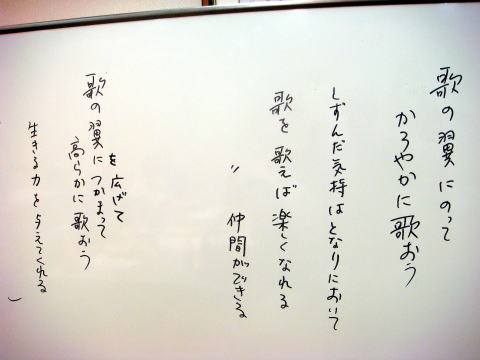 歌の翼にのって
かろやかに歌おう
しずんだ気持はとなりにおいて
歌を歌えば楽しくなれる
〃 仲間ができる
を広げて
歌の翼につかまって
高らかに歌おう
生きる力を与えてくれる